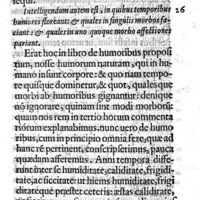 sequi.
Intelligendum autem est, in quibus temporibus 26
humores floreant: & quales in singulis morbos fa-
ciant: & quales in uno quoque morbo affectiones
pariant.
Erat hoc in libro de humoribus proposi
tum, nosse humorum naturam, qui in hu-
mano insunt corpore: & quo nam tempo-
re quisque dominetur, & quot, quales mor-
bi ab his humoribus gignantur: denique
nō ignorare, quinam sint modi morborū:
quos nos iam in tertio horum commenta
riorum explanabimus. nunc uero de humo
ribus, cum in præcipio omnia fere, quæ ad
hanc rē pertinent, conscripserimus, pauca
quædam afferemus. Anni tempora diffe-
runt inter se humiditate, caliditate, frigidi-
tate, ac siccitate. ut hiems humiditate, frigidi
tateque præstet ceteris: æstas caliditate,